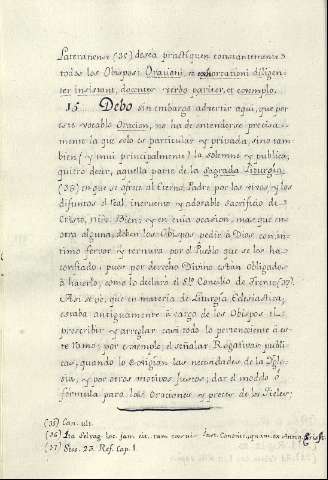 Lateranense (35) desea practiquen constantemente
todos los Obispos: Orationi, et exhortationi diligen-
ter insistant, docentes verbo pariter, et exemplo.
15. Debo sin embargo advertir aqui, que por
este vocablo Oracion, no ha de entenderse precisa-
mente la que solo es particular y privada, sino tam-
bien (y mui principalmente) la solemne y publica,
quiero decir, aquella parte de la sagrada Liturgia
(36) en que se ofrece al Eterno Padre por los vivos, y los
difuntos el real, incruento y adorable Sacrificio de
Cristo, nuestro Bien: y en cuia ocasion, mas que en
otra alguna, deben los Obispos pedir à Dios con in-
timo fervor, y ternura, por el Pueblo que se les ha
confiado; pues por derecho Divino estan obligados
à hacerlo; como lo declarò el Sto. Concilio de Trento (37).
Asi se ve, que en materia de Liturgia Eclesiastica,
estaba antiguamente à cargo de los Obispos el
prescribir y arreglar casi todo lo perteneciente à es-
te Ramo; por exemplo, el señalar Rogativas publi-
cas, quando lo exigian las necesidades de la Igle-
sia, y por otros motivos justos; dar el modelo ò
fórmula para las Oraciones y preces de los Fieles;
(35) Can. ult.
(36) Ita Selvag. loc. jam cit. tum
(37) Sess. 23. Ref. Cap. 1.